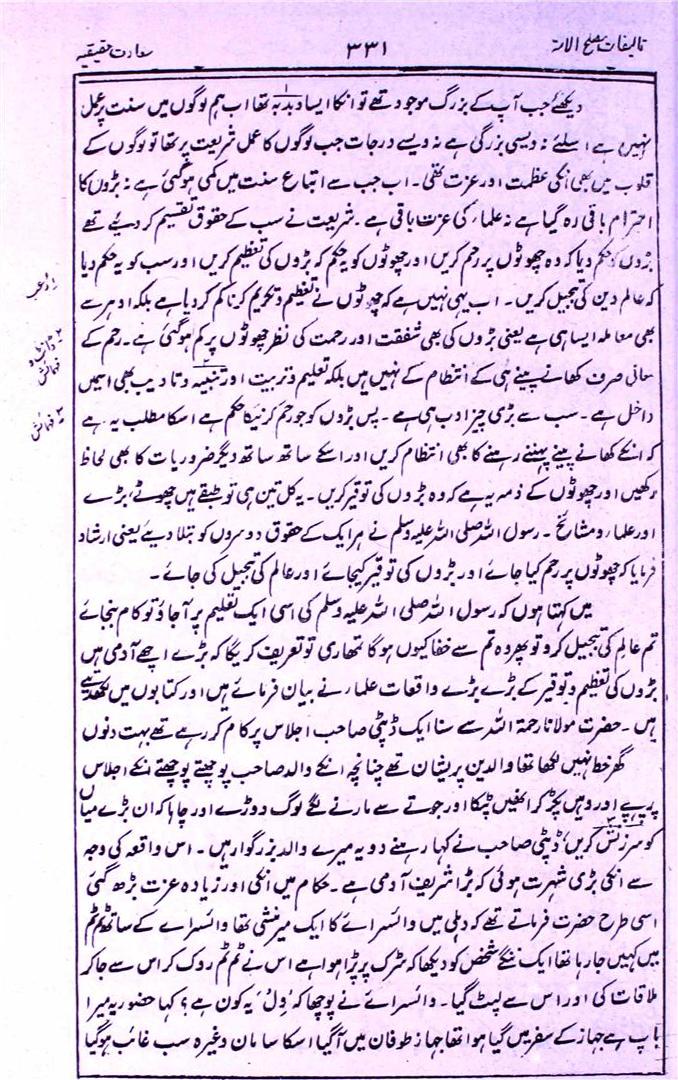 تالیفات مصلح الامۃ ۳۳۱ سعادت حقیقیہ
دیکھئے جب آپ کے بزرگ موجود تھے تو انکا ایسا دبدبہ۱ تھا اب ہم لوگوں میں سنت پر عمل
نہیں ہے اسلئے نہ ویسی بزرگی ہے نہ ویسے درجات جب لوگوں کا عمل شریعت پر تھا تو لوگوں کے
قلوب میں بھی انکی عظمت اور عزت تھی۔ اب جب سے اتباع سنت میں کمی ہوگئی ہے نہ بڑوں کا
احترام باقی رہ گیا ہے نہ علماء کی عزت باقی ہے۔ شریعت نے سب کے حقوق تقسیم کر دیئے تھے
بڑوں کو حکم دیا کہ وہ چھوٹوں پر رحم کریں اور چھوٹوں کو یہ حکم کہ بڑوں کی تعظیم کریں اور سب کو یہ حکم دیا
کہ عالم دین کی تبجیل کریں۔ اب یہی نہیں ہے کہ چھوٹوں نے تعظیم و تکریم کرنا کم کر دیا ہے بلکہ ادھر سے
بھی معاملہ ایسا ہی ہے یعنی بڑوں کی بھی شفقت اور رحمت کی نظر چھوٹوں پر کم ہوگئی ہے۔ رحم کے
معانی صرف کھانے پینے ہی کے انتظام کے نہیں ہیں بلکہ تعلیم و تربیت اور تنبیہ۲ و تادیب بھی اسمیں
داخل ہے۔ سب سے بڑی چیز ادب ہی ہے۔ پس بڑوں کو جو رحم کرنیکا حکم ہے اسکا مطلب یہ ہے
کہ انکے کھانے پینے پہننے رہنے کا بھی انتظام کریں اور اسکے ساتھ ساتھ دیگر ضروریات کا بھی لحاظ
رکھیں اور چھوٹوں کے ذمہ یہ ہے کہ وہ بڑوں کی توقیر کریں۔ یہ کل تین ہی تو طبقے ہیں چھوٹے، بڑے
اور علماء و مشائخ۔ رسول اللہ صلی اللہ علیہ وسلم نے ہر ایک کے حقوق دوسروں کو بتلا دیئے یعنی ارشاد
فرمایا کہ چھوٹوں پر رحم کیا جائے اور بڑوں کی توقیر کیجائے اور عالم کی تبجیل کی جائے۔
میں کہتا ہوں کہ رسول اللہ صلی اللہ علیہ وسلم کی اسی ایک تعلیم پر آجاؤ تو کام بنجائے
تم عالم کی تبجیل کرو تو پھر وہ تم سے خفا کیوں ہوگا تمھاری تو تعریف کریگا کہ بڑے اچھے آدمی ہیں
بڑوں کی تعظیم و توقیر کے بڑے بڑے واقعات علماء نے بیان فرمائے ہیں اور کتابوں میں لکھدیئے
ہیں۔ حضرت مولانا رحمۃ اللہ سے سنا ایک ڈپٹی صاحب اجلاس پر کام کر رہے تھے بہت دنوں
گھر خط نہیں لکھا تھا والدین پریشان تھے چنانچہ انکے والد صاحب پوچھتے پوچھتے انکے اجلاس
پر پہنچے اور وہیں پکڑ کر انھیں پٹکا اور جوتے سے مارنے لگے لوگ دوڑے اور چاہا کہ ان بڑے میاں
کو سرزنش۳ کریں، ڈپٹی صاحب نے کہا رہنے دو یہ میرے والد بزرگوار ہیں۔ اس واقعہ کی وجہ
سے انکی بڑی شہرت ہوئی کہ بڑا شریف آدمی ہے۔ حکام میں انکی اور زیادہ عزت بڑھ گئی
اسی طرح حضرت فرماتے تھے کہ دہلی میں وائسرائے کا ایک میر منشی تھا وائسرائے کے ساتھ ٹم ٹم
میں کہیں جا رہا تھا ایک ننگے شخص کو دیکھا کہ سڑک پر پڑا ہوا ہے اس نے ٹم ٹم روک کر اس سے جا کر
ملاقات کی اور اس سے لپٹ گیا۔ وائسرائے نے پوچھا کہ 'وِل' یہ کون ہے؟ کہا حضور یہ میرا
باپ ہے جہاز کے سفر میں گیا ہوا تھا جہاز طوفان میں آگیا اسکا سامان وغیرہ سب غائب ہوگیا
۱؎ رعب
۲؎ ڈانٹ و
فہمائش
۳؎ فہمائش